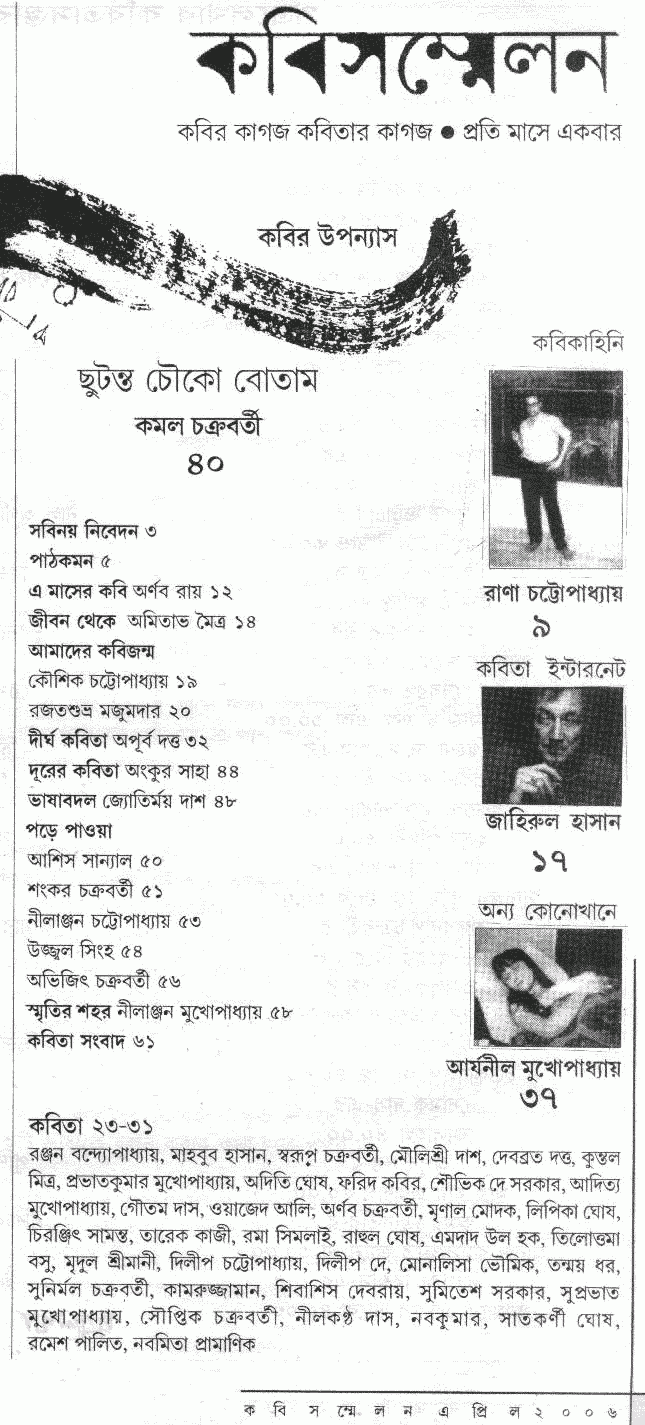 কবিসম্মেলন
কবির কাগজ কবিতার কাগজ ● প্রতি মাসে একবার
কবির উপন্যাস
ছুটন্ত চৌকো বোতাম
কমল চক্রবর্তী
৪০
সবিনয় নিবেদন ৩
পাঠকমন ৫
এ মাসের কবি অর্ণব রায় ১২
জীবন থেকে অমিতাভ মৈত্র ১৪
আমাদের কবিজন্ম
কৌশিক চট্টোপাধ্যায় ১৯
রজতশুভ্র মজুমদার ২০
দীর্ঘ কবিতা অপূর্ব দত্ত ৩২
দূরের কবিতা অংকুর সাহা ৪৪
ভাষাবদল জ্যোতির্ময় দাশ ৪৮
পড়ে পাওয়া
আশিস সান্যাল ৫০
শংকর চক্রবর্তী ৫১
নীলাঞ্জন চট্টোপাধ্যায় ৫৩
উজ্জ্বল সিংহ ৫৪
অভিজিৎ চক্রবর্তী ৫৬
স্মৃতির শহর নীলাঞ্জন মুখোপাধ্যায় ৫৮
কবিতা সংবাদ ৬১
কবিকাহিনি
রাণা চট্টোপাধ্যায়
৯
কবিতা ইন্টারনেট
জাহিরুল হাসান
১৭
অন্য কোনোখানে
আর্যনীল মুখোপাধ্যায়
৩৭
কবিতা ২৩-৩১
রঞ্জন বন্দ্যোপাধ্যায়, মাহবুব হাসান, স্বরূপ চক্রবর্তী, মৌলিশ্রী দাশ, দেবব্রত দত্ত, কুন্তল
মিত্র, প্রভাতকুমার মুখোপাধ্যায়, অদিতি ঘোষ, ফরিদ কবির, শৌভিক দে সরকার, আদিত্য
মুখোপাধ্যায়, গৌতম দাস, ওয়াজেদ আলি, অর্ণব চক্রবর্তী, মৃণাল মোদক, লিপিকা ঘোষ,
চিরঞ্জিৎ সামন্ত, তারেক কাজী, রমা সিমলাই, রাহুল ঘোষ, এমদাদ উল হক, তিলোত্তমা
বসু, মৃদুল শ্রীমানী, দিলীপ চট্টোপাধ্যায়, দিলীপ দে, মোনালিসা ভৌমিক, তন্ময় ধর,
সুনির্মল চক্রবর্তী, কামরুজ্জামান, শিবাশিস দেবরায়, সুমিতেশ সরকার, সুপ্রভাত
মুখোপাধ্যায়, সৌপ্তিক চক্রবর্তী, নীলকণ্ঠ দাস, নবকুমার, সাতকর্ণী ঘোষ,
রমেশ পালিত, নবমিতা প্রামাণিক
ক বি স ম্মে ল ন এ প্রি ল ২ ০ ০ ৬